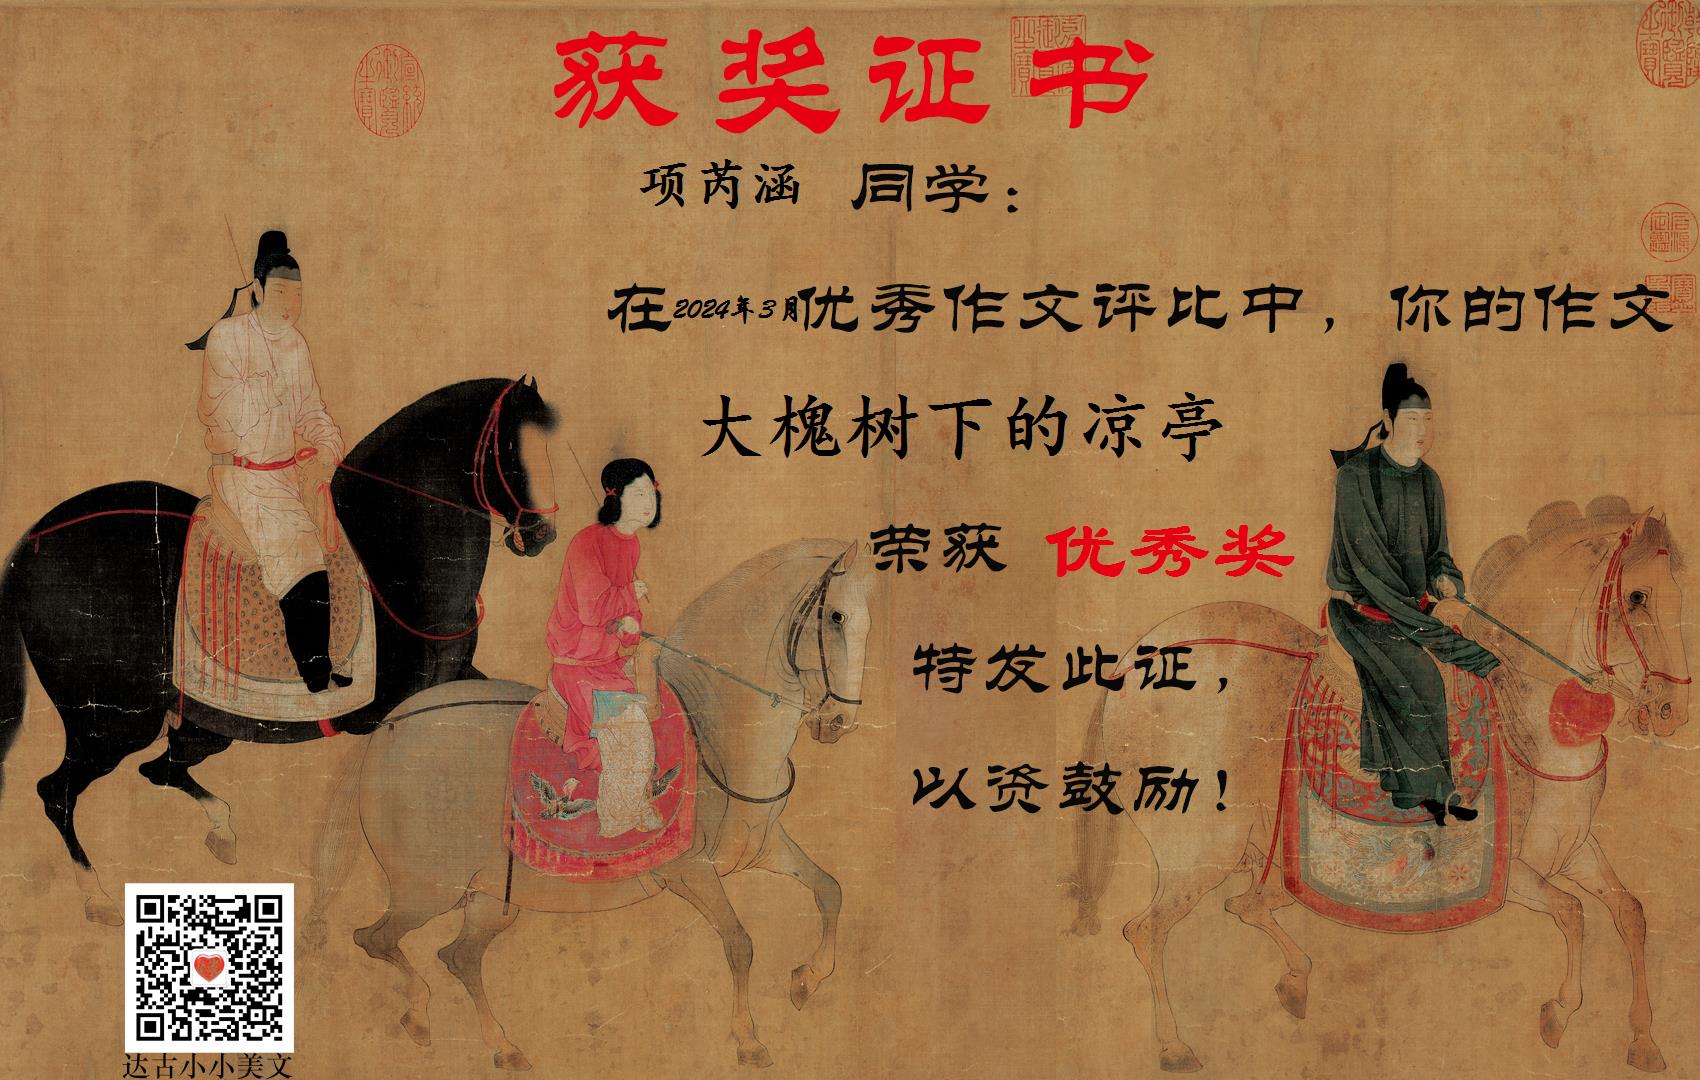 获奖证书
项芮涵 同学：
在2024年3月优秀作文评比中，你的作文
大槐树下的凉亭
荣获 优秀奖
特发此证，
以资鼓励！
达古小小美文